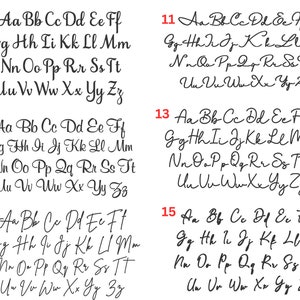 Aa Bb Cc Dd Ee Ff
Gg Hh Ii Kk Ll Mm
Nn Oo Pp Qq Rr Ss Tt
Uu Vv Ww Xx Yy Zz
11
Aa Bb Cc Dd Ee Ff
Gg Hh Ii Jj Kk Ll Mm
Nn Oo Pp Qq Rr Ss Tt
Uu Vv Ww Xx Yy Zz
Aa Bb Cc Dd Ee Ff
Gg Hh Ii Jj Kk Ll Mm
Nn Oo Pp Qq Rr Ss Tt
Uu Vv Ww Xx Yy Zz
13
Aa Bb Cc Dd Ee Ff
Gg Hh Ii Jj Kk Ll Mm
Nn Oo Pp Qq Rr Ss Tt
Uu Vv Ww Xx Yy Zz
Aa Bb Cc Dd Ee Ff
Gg Hh Ii Jj Kk Ll Mm
Nn Oo Pp Qq Rr Ss Tt
Uu Vv Ww Xx Yy Zz
15
Aa Bb Cc Dd Ee Ff
Gg Hh Ii Jj Kk Ll
Nn Oo Pp Qq Rr Ss
Uu Vv Ww Xx Yy